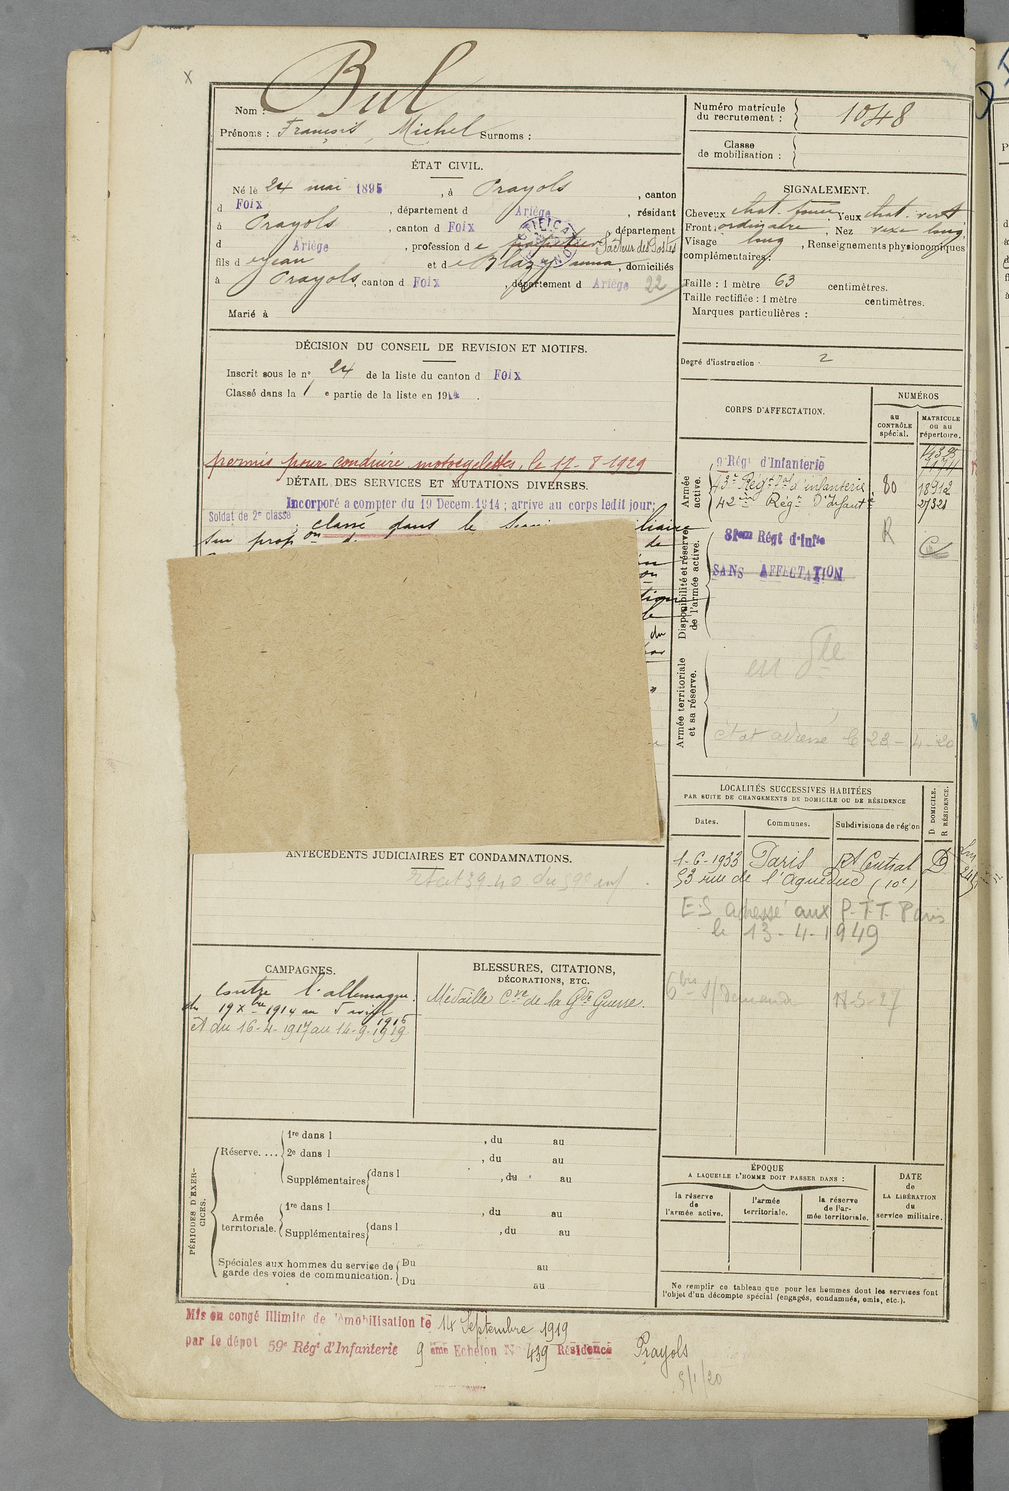 x
Nom : Bul
Prénoms : François, Michel Surnoms :
ÉTAT CIVIL.
Né le 24 mai 1895, à Prayols, canton
d Foix, département d Ariège, résidant
à Prayols, canton d Foix, département
d Ariège, profession de Facteur des Postes
fils de Jean et de Blazy Anna, domiciliés
à Prayols, canton d Foix, département d Ariège 22
Marié à
DÉCISION DU CONSEIL DE REVISION ET MOTIFS.
Inscrit sous le n° 24 de la liste du canton d Foix
Classé dans la 1 e partie de la liste en 1914.
permis pour conduire motocyclettes, le 17-8-1929
DÉTAIL DES SERVICES ET MUTATIONS DIVERSES.
Incorporé a compter du 19 Decem. 1914 ; arrive au corps ledit jour;
Soldat de 2e classe
classé dans le
sur prop on
de
du
ANTÉCÉDENTS JUDICIAIRES ET CONDAMNATIONS.
CAMPAGNES.
Contre l'allemagne:
du 19 Xbre 1914 au 5 avril 1915
et du 16-4-1917 au 14-9-1919
BLESSURES, CITATIONS,
DÉCORATIONS, ETC.
Médaille Cve de la Gde Guerre.
PÉRIODES D'EXERCICES.
Réserve....
1re dans l , du au
2e dans l , du au
Supplémentaires dans l , du au
Armée territoriale.
1re dans l , du au
Supplémentaires dans l , du au
Spéciales aux hommes du service de garde des voies de communication.
Du au
Du au
Mis en congé illimité de démobilisation le 14 Septembre 1919
par le dépôt 59e Régt d'Infanterie 9 ème Echelon N° 439 Résidence Prayols
5/1/20
Numéro matricule
du recrutement : 1048
Classe
de mobilisation :
SIGNALEMENT.
Cheveux chat. foncé, Yeux chat. vert
Front ordinaire, Nez vexe long
Visage long, Renseignements physionomiques
complémentaires :
Taille : 1 mètre 63 centimètres.
Taille rectifiée : 1 mètre centimètres.
Marques particulières :
Degré d'instruction 2
CORPS D'AFFECTATION.
NUMÉROS
au
CONTRÔLE
spécial.
MATRICULE
ou au
répertoire.
Armée active.
9e Régt d'Infanterie
43e Régt d'infanterie 80 18912
42me Régt D'Infante 27321
Disponibilité et réserve de l'armée active.
R
SANS AFFECTATION
Armée territoriale et sa réserve.
état adressé le 23-4-20
LOCALITÉS SUCCESSIVES HABITÉES
PAR SUITE DE CHANGEMENTS DE DOMICILE OU DE RÉSIDENCE
Dates.
Communes.
Subdivisions de région
D DOMICILE.
R RÉSIDENCE.
1-6-1933 Paris Rt Central D
53 rue de l'Aqueduc (10e)
E.S. adressé aux P.T.T. Paris
le 13-4-1949
ÉPOQUE
A LAQUELLE L'HOMME DOIT PASSER DANS :
la réserve
de
l'armée active.
l'armée
territoriale.
la réserve
de l'armée territoriale.
DATE
de
LA LIBÉRATION
du
service militaire.
Ne remplir ce tableau que pour les hommes dont les services font
l'objet d'un décompte spécial (engagés, condamnés, omis, etc.).